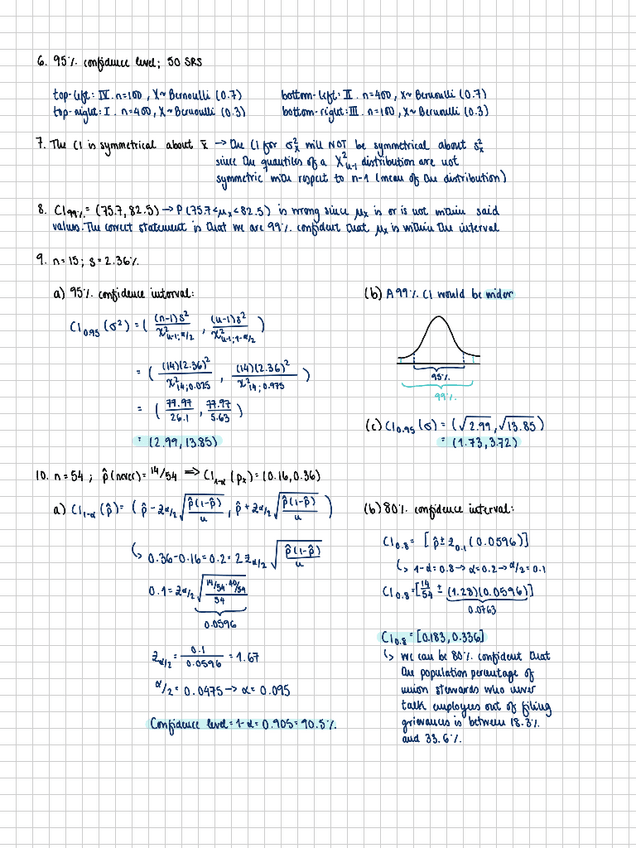 6. 95% confidence level; 50 SRS
top-left: IV. n=100, X~ Bernoulli (0.7)
bottom-left: II. n=400, X~ Bernoulli (0.7)
top-right: I. n=400, X~ Bernoulli (0.3)
bottom-right: III. n=100, X~ Bernoulli (0.3)
7. The CI is symmetrical about x̄ → The CI for σ²ₓ will NOT be symmetrical about s²ₓ
since the quantiles of a χ²ₙ₋₁ distribution are not
symmetric with respect to n-1 (mean of the distribution)
8. CI₉₉% = (75.7, 82.5) → P(75.7<μₓ<82.5) is wrong since μₓ is or is not within said
values. The correct statement is that we are 99% confident that μₓ is within the interval
9. n=15; s=2.36%
a) 95% confidence interval:
CI₀.₉₅ (σ²) = ( (n-1)s² / χ²n-1;α/2 , (n-1)s² / χ²n-1;1-α/2 )
= ( (14)(2.36)² / χ²14;0.025 , (14)(2.36)² / χ²14;0.975 )
= ( 77.97/26.1 , 77.97/5.63 )
= (2.99, 13.85)
(b) A 99% CI would be wider
95%
99%
(c) CI₀.₉₅ (σ) = (√2.99, √13.85)
= (1.73, 3.72)
10. n=54; p̂(never) = 14/54 ⇒ CI₁₋α (pₓ) = (0.16, 0.36)
a) CI₁₋α (p̂) = ( p̂ - zα/2 √(p̂(1-p̂)/n) , p̂ + zα/2 √(p̂(1-p̂)/n) )
↳ 0.36-0.16 = 0.2 = 2 zα/2 √(p̂(1-p̂)/n)
0.1 = zα/2 √((14/54 · 40/54)/54)
0.0596
zα/2 = 0.1/0.0596 = 1.67
α/2 = 0.0475 → α = 0.095
Confidence level = 1-α = 0.905 = 90.5%.
(b) 80% confidence interval:
CI₀.₈ = [p̂ ± z₀.₁ (0.0596)]
↳ 1-α = 0.8 → α = 0.2 → α/2 = 0.1
CI₀.₈ = [14/54 ± (1.28)(0.0596)]
0.0763
CI₀.₈ = [0.183, 0.336]
↳ We can be 80% confident that
the population percentage of
union stewards who never
talk employees out of filing
grievances is between 18.3%
and 33.6%.